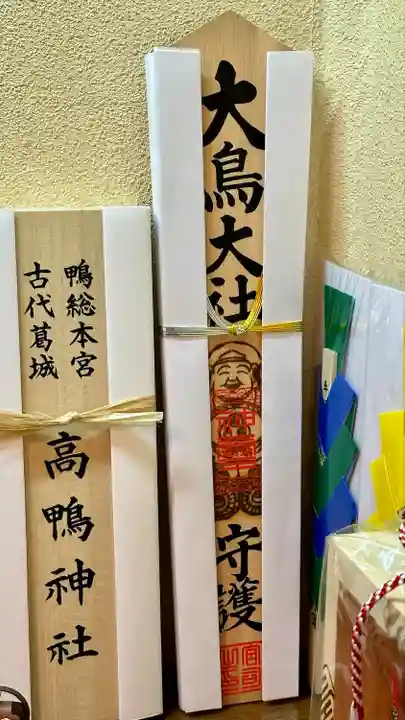 鴨総本宮
古代葛城
高鴨神社
大鳥大社
守護